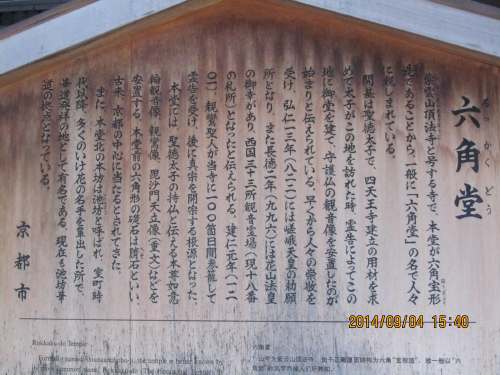 六角堂
ろっかくどう
紫雲山頂法寺と号する寺で、本堂が六角宝形
造であることから、一般に「六角堂」の名で人々
に親しまれている。
開基は聖徳太子で、四天王寺建立の用材を求
めて太子がこの地を訪れた時、霊告によってこの
地に御堂を建て、守護仏の観音像を安置したのが
始まりと伝えられている。早くから人々の崇敬を
受け、弘仁一三年（八二二）には嵯峨天皇の勅願
所となり、また長徳二年（九九六）には花山法皇
の御幸があり、西国三十三所観音霊場（現十八番
の札所）となったと伝えられる。建仁元年（一二
〇一）、親鸞聖人が当寺に一〇〇箇日間参籠して
霊告を受け、後に真宗を開宗する根源となった。
本堂には、聖徳太子の持仏と伝える本尊如意
輪観音像、親鸞像、毘沙門天立像（重文）などを
安置する。本堂前の六角形の礎石は臍石といい、
古来、京都の中心に当たるとされてきた。
また、本堂北の本坊は池坊と呼ばれ、室町時
代以降、多くのいけ花の名手を輩出した所で、
華道発祥の地として有名である。現在も池坊華
道の拠点となっている。
京都市
2014/09/04 15:40
Rokkaku-do Temple